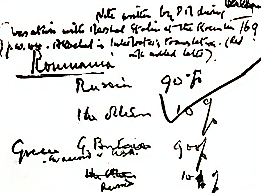 Note written by PM during
Conversation with Marshal Stalin at the Kremlin 169
Attached is Interpreter's translation. (
note added later).
Roumania
Russia 90%
The Others 10%
Greece G. Britain 90%
in accord w U.S.A.
Russia 10%